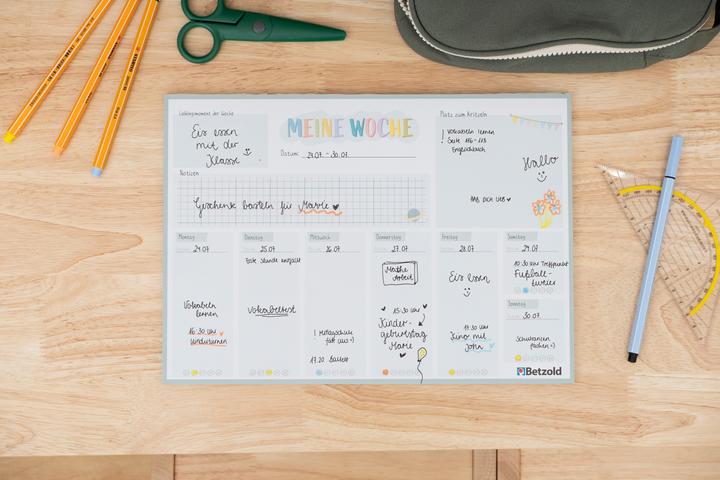 Lieblingsmoment der Woche
Eis essen
mit der
Klasse
MEINE WOCHE
Datum: 24.07 - 30.07
Platz zum Kritzeln
! Vokabeln lernen
Seite 116-118
Englischbuch
Hallo
HAB DICH LIEB
Notizen
Geschenke basteln für Marie
Montag
24.07
Vokabeln
lernen
16:30 Uhr
Kinderturnen
Dienstag
25.07
Erste Stunde entfällt
Vokabeltest
Mittwoch
26.07
! Mittagschule
fällt aus =)
17:20
Donnerstag
27.07
Mathe
Arbeit
15:30 Uhr
Kinder-
geburtstag
Marie
Freitag
28.07
Eis essen
17:30 Uhr
Kino mit
John
Samstag
29.07
10:30 Uhr Treffpunkt
Fußball-
turnier
Sonntag
30.07
Schulranzen
packen =)
Betzold